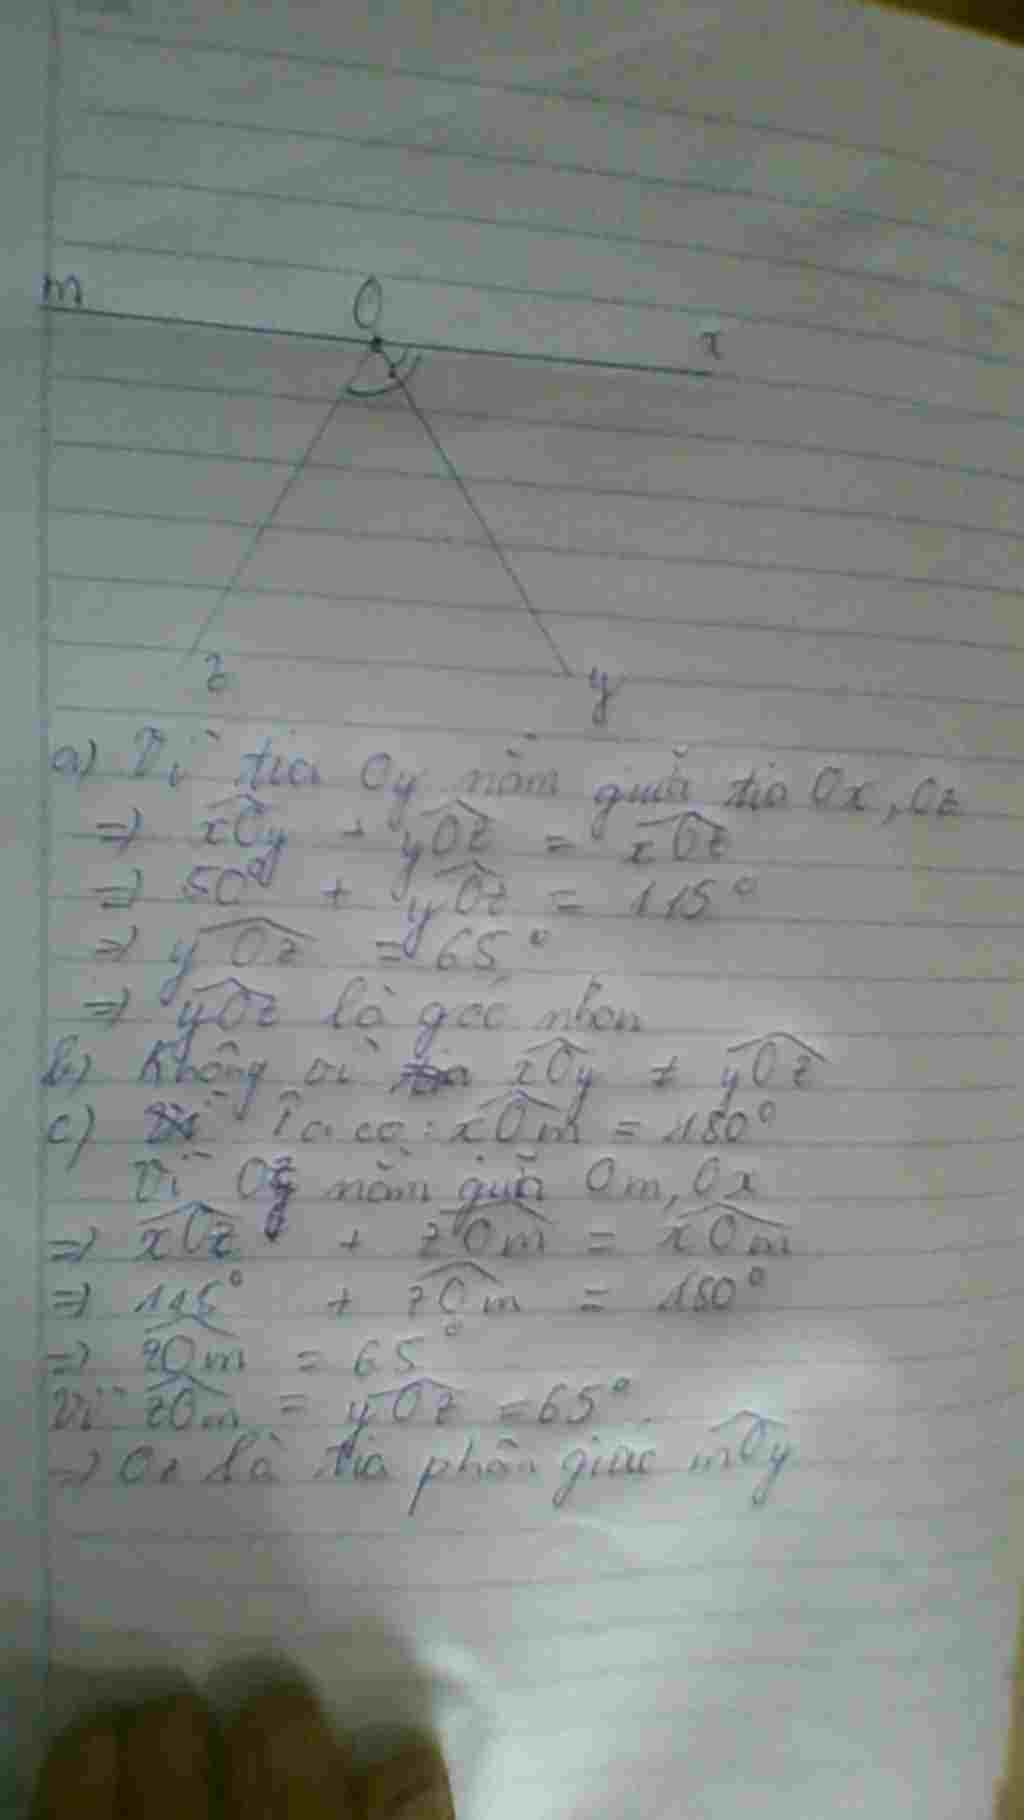 m O x
z y
a) Vì tia Oy nằm giữa tia Ox, Oz
=> xOy + yOz = xOz
=> 50° + yOz = 115°
=> yOz = 65°
=> yOz là góc nhọn
b) Không vì xOy ≠ yOz
c) Ta có: xOm = 180°
Vì Oz nằm giữa Om, Ox
=> xOz + zOm = xOm
=> 115° + zOm = 180°
=> zOm = 65°
Vì zOm = yOz = 65°
=> Oz là tia phân giác mOy